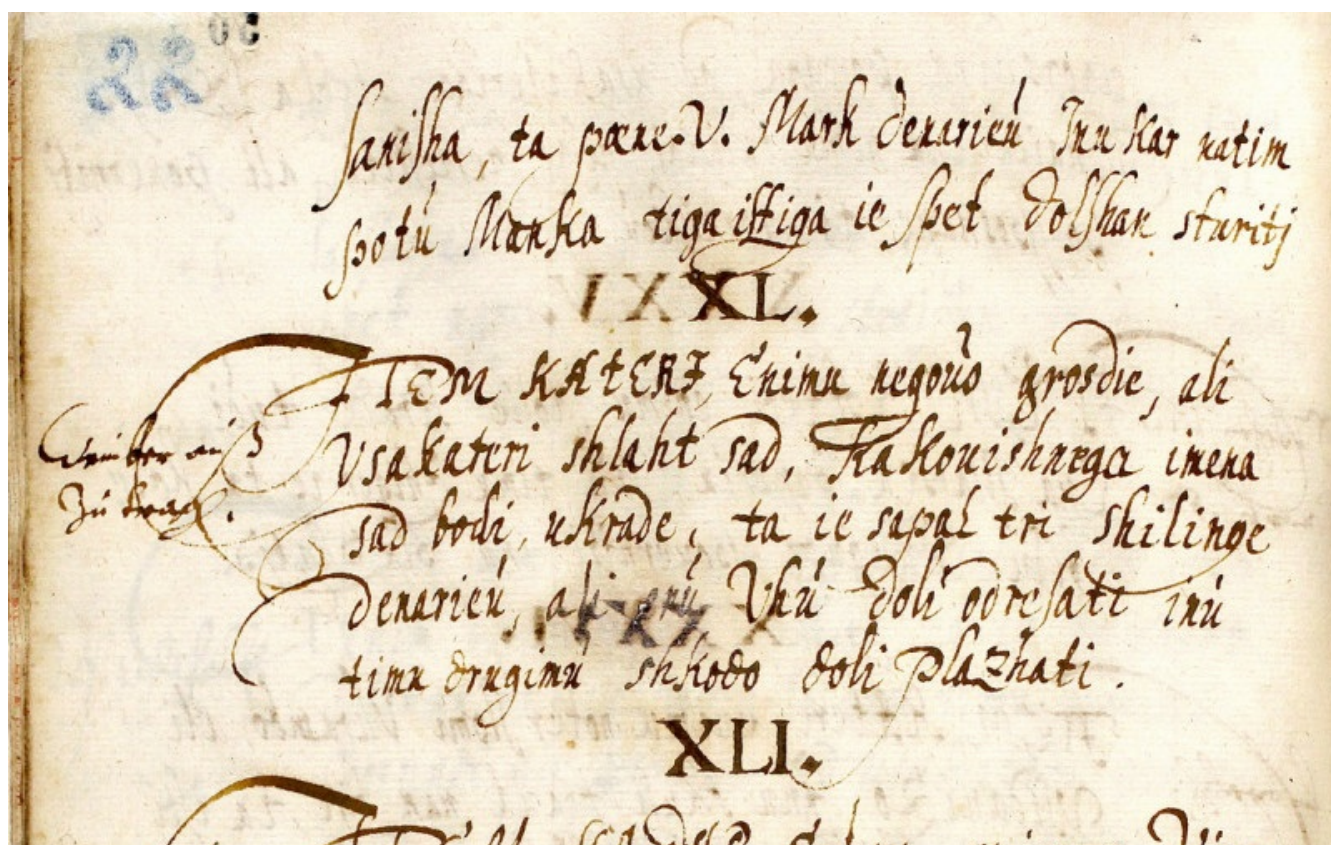 ſaniſha, ta pœne. V. Mark denarieú Inu kar natim
ſpotú Manka tiga iſtiga ie ſpet dolſhan sturitj
XL.
ITEM KATERI, Enimu negouo grosdie, ali
Vsakateri shlaht sad, Kakouishnega imena
sad bodi, ukrade, ta ie sapal tri shilinge
denarieú, ali enú Vhú doli odreſati inú
timu drugimú shkodo doli plazhati.
XLI.